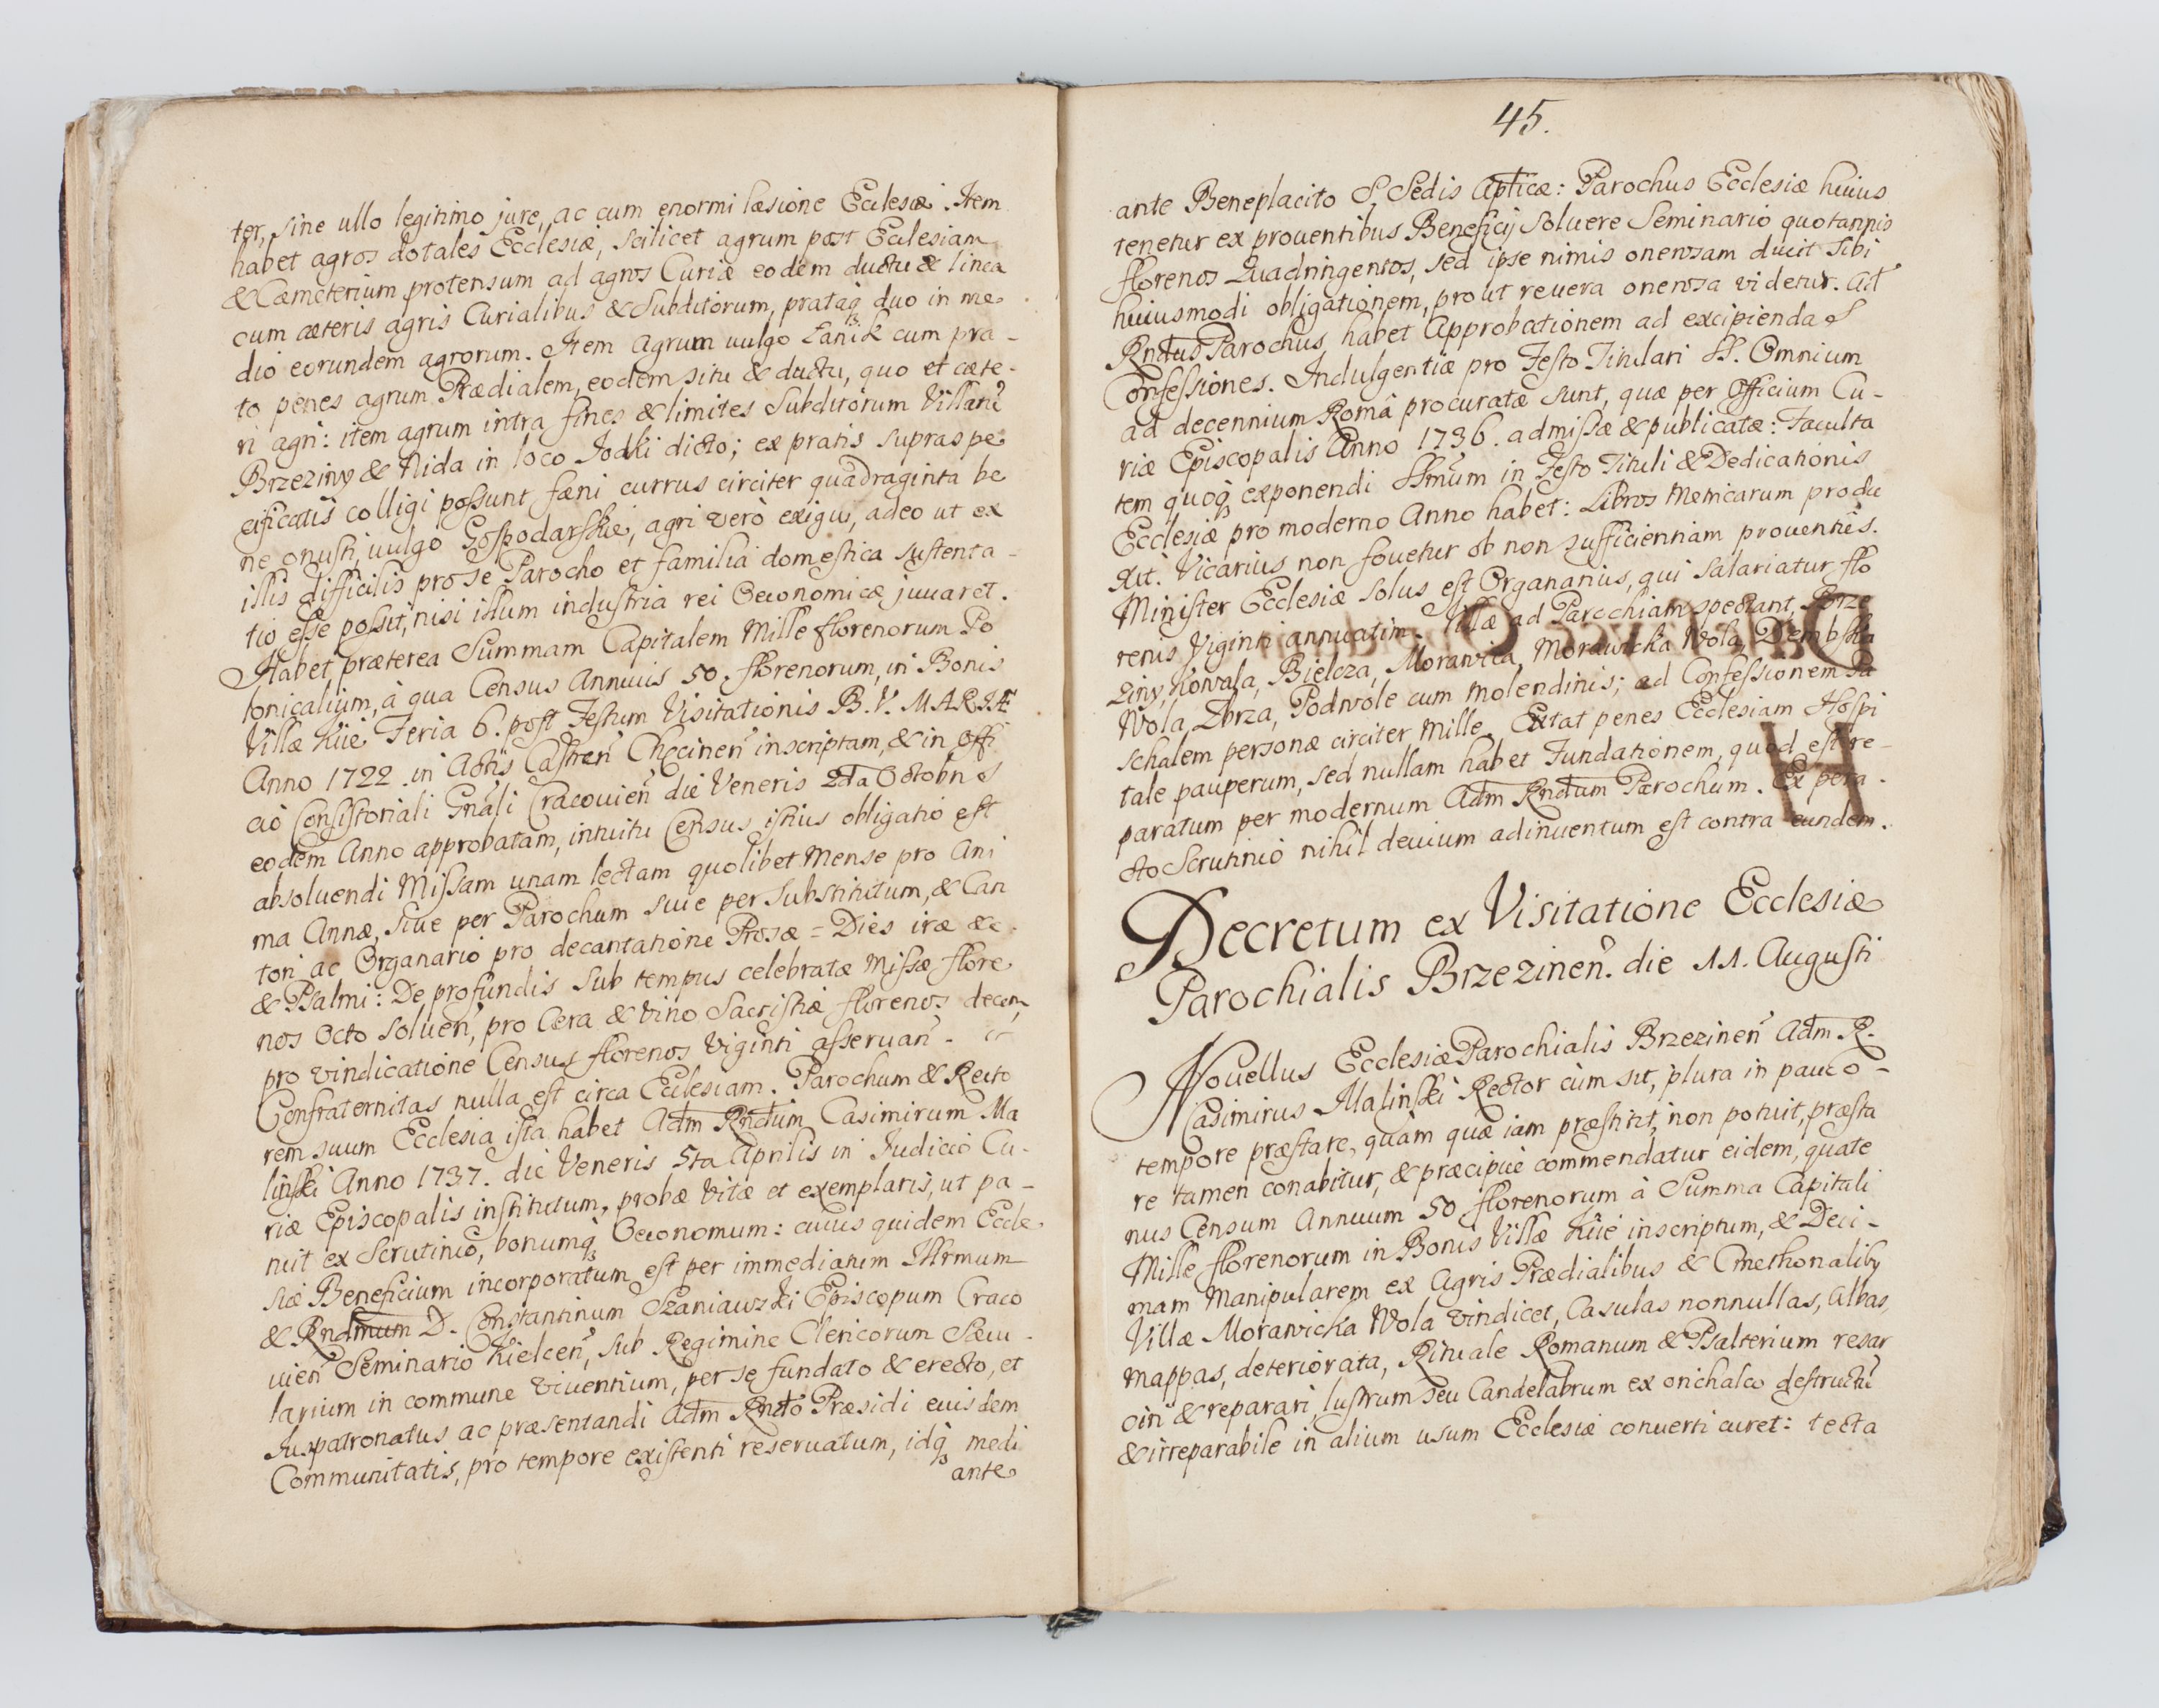 ter, sine ullo legitimo jure, ac cum enormi læsione Ecclesiæ. Item
habet agros dotales Ecclesiæ, scilicet agrum post Ecclesiam
& Cæmeterium protensum ad agros Curiæ eodem ductu & linea
cum cæteris agris Curialibus & Subditorum, prataq₃ duo in me
dio eorundem agrorum. Item Agrum vulgo Łanik cum pra-
to penes agrum Prædialem, eodem situ & ductu, quo et cæte-
ri agri: item agrum intra fines & limites Subditorum Villarũ
Brzeziny & Nida in loco Jodki dicto; ex pratis supraspe
cificatis colligi possunt fæni currus circiter quadraginta be
ne onusti, vulgo Gospodarskie, agri verò exigui, adeo ut ex
illis difficilis pro se Parocho et familiâ domestica sustenta-
tio esse possit, nisi illum industria rei Oeconomicæ juvaret.
Habet præterea Summam Capitalem Mille florenorum Po
lonicalium, à qua Census Annuus 50. florenorum, in Bonis
Villæ Kiie Feria 6. post Festum Visitationis B. V. MARIÆ
Anno 1722. in Actis Castreñ Chęcineñ inscriptam, & in Offi
cio Consistoriali Gnãli Cracovieñ die Veneris 2da Octobris
eodem Anno approbatam, intuitu Census istius obligatio est
absolvendi Missam unam lectam quolibet Mense pro Ani
ma Annæ, sive per Parochum sive per Substitutum, & Can
tori ac Organario pro decantatione Prosæ = Dies iræ &c.
& Psalmi: De profundis sub tempus celebratæ Missæ flore
nos Octo solveñ, pro Cera & Vino Sacristiæ florenos decem,
pro vindicatione Census florenos Viginti asservañ.
Confraternitas nulla est circa Ecclesiam. Parochum & Recto
rem suum Ecclesia ista habet Adm Rndum Casimirum Ma
linski Anno 1737. die Veneris 5ta Aprilis in Judicio Cu-
riæ Episcopalis institutum, probæ vitæ et exemplaris, ut pa-
tuit ex Scrutinio, bonumq₃ Oeconomum: cuius quidem Eccle
siæ Beneficium incorporatum est per immediatum Illrmum
& Rndmum D. Constantinum Szaniawski Episcopum Craco
vieñ Seminario Kielceñ, sub Regimine Clericorum Sæcu-
larium in commune Viventium, per se fundato & erecto, et
Juspatronatus ac præsentandi Adm Rndo Præsidi eiusdem
Communitatis, pro tempore existenti reservatum, idq₃ medi
ante
45.
ante Beneplacito S. Sedis Apticæ: Parochus Ecclesiæ huius
tenetur ex proventibus Beneficij solvere Seminario quotannis
florenos Quadringentos, sed ipse nimis onerosam ducit sibi
huiusmodi obligationem, prout revera onerosa videtur. Ad
Rndus Parochus habet Approbationem ad excipienda S
Confessiones. Indulgentiæ pro Festo Titulari SS. Omnium
ad decennium Româ procuratæ sunt, quæ per Officium Cu-
riæ Episcopalis Anno 1736. admissæ & publicatæ: Faculta
tem quoq₃ exponendi SSmum in Festo Tituli & Dedicationis
Ecclesiæ pro moderno Anno habet: Libros Metricarum produ
xit. Vicarius non fovetur ob non sufficientiam proventûs.
Minister Ecclesiæ solus est Organarius, qui salariatur flo
renis Viginti annuatim. Villæ ad Parochiam spectant, Brze
ziny, Kowala, Bielcza, Morawica, Morawicka Wola, Dembska
Wola, Zbrza, Podwole cum molendinis; ad Confessionem Pa
schalem personæ circiter Mille. Extat penes Ecclesiam Hospi
tale pauperum, sed nullam habet Fundationem, quod est re-
paratum per modernum Adm Rndum Parochum. Ex pera-
cto Scrutinio nihil devium adinventum est contra eundem.
Decretum ex Visitatione Ecclesiæ
Parochialis Brzezineñ. die 11. Augusti
Novellus Ecclesiæ Parochialis Brzezineñ Adm R.
Casimirus Malinski Rector cùm sit, plura in pauco-
tempore præstare, quàm quæ iam præstitit, non potuit, præsta
re tamen conabitur, & præcipuè commendatur eidem, quate
nus Censum Annuum 50 florenorum à Summa Capitali
Mille florenorum in Bonis Villæ Kiie inscriptum, & Deci-
mam Manipularem ex Agris Prædialibus & Cmethonalibꝰ
Villæ Morawicka Wola vindicet, Casulas nonnullas, Albas,
Mappas, deteriorata, Rituale Romanum & Psalterium resar
ciri & reparari, lustrum seu Candelabrum ex orichalco destructũ
& irreparabile in alium usum Ecclesiæ converti curet: tecta